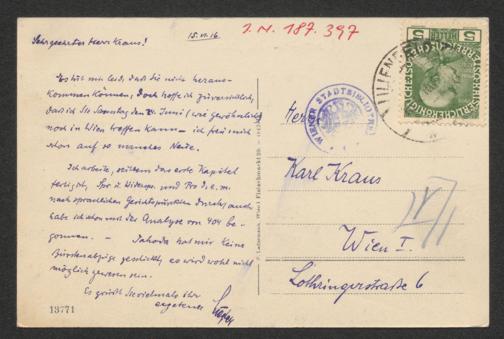 15.VI.16
I.N. 187.397
Sehr geehrter Herr Kraus!
Es tut mir leid, dass Sie nicht heraus-
kommen können. Doch hoffe ich zuversichtlich,
dass ich Sie Samstag den Juni (wie gewöhnlich)
noch in Wien treffen kann – ich freu mich
schon auf so manches Neue.
Ich arbeite, seitdem das erste Kapitel
fertig ist, u. Widerspr. und
nach sprachlichen Gesichtspunkten durch; auch
habe ich schon mit der Analyse von 404 be-
gonnen. – Jahoda hat mir keine
Bürstenabzüge geschickt, es wird wohl nicht
möglich gewesen sein.
Es grüßt Sie vielmals Ihr
ergebener
13771
WIENER STADTBIBLIOTHEK
LILIENF
5
5
Herrn
Karl Kraus
Wien I.
Lothringerstraße 6